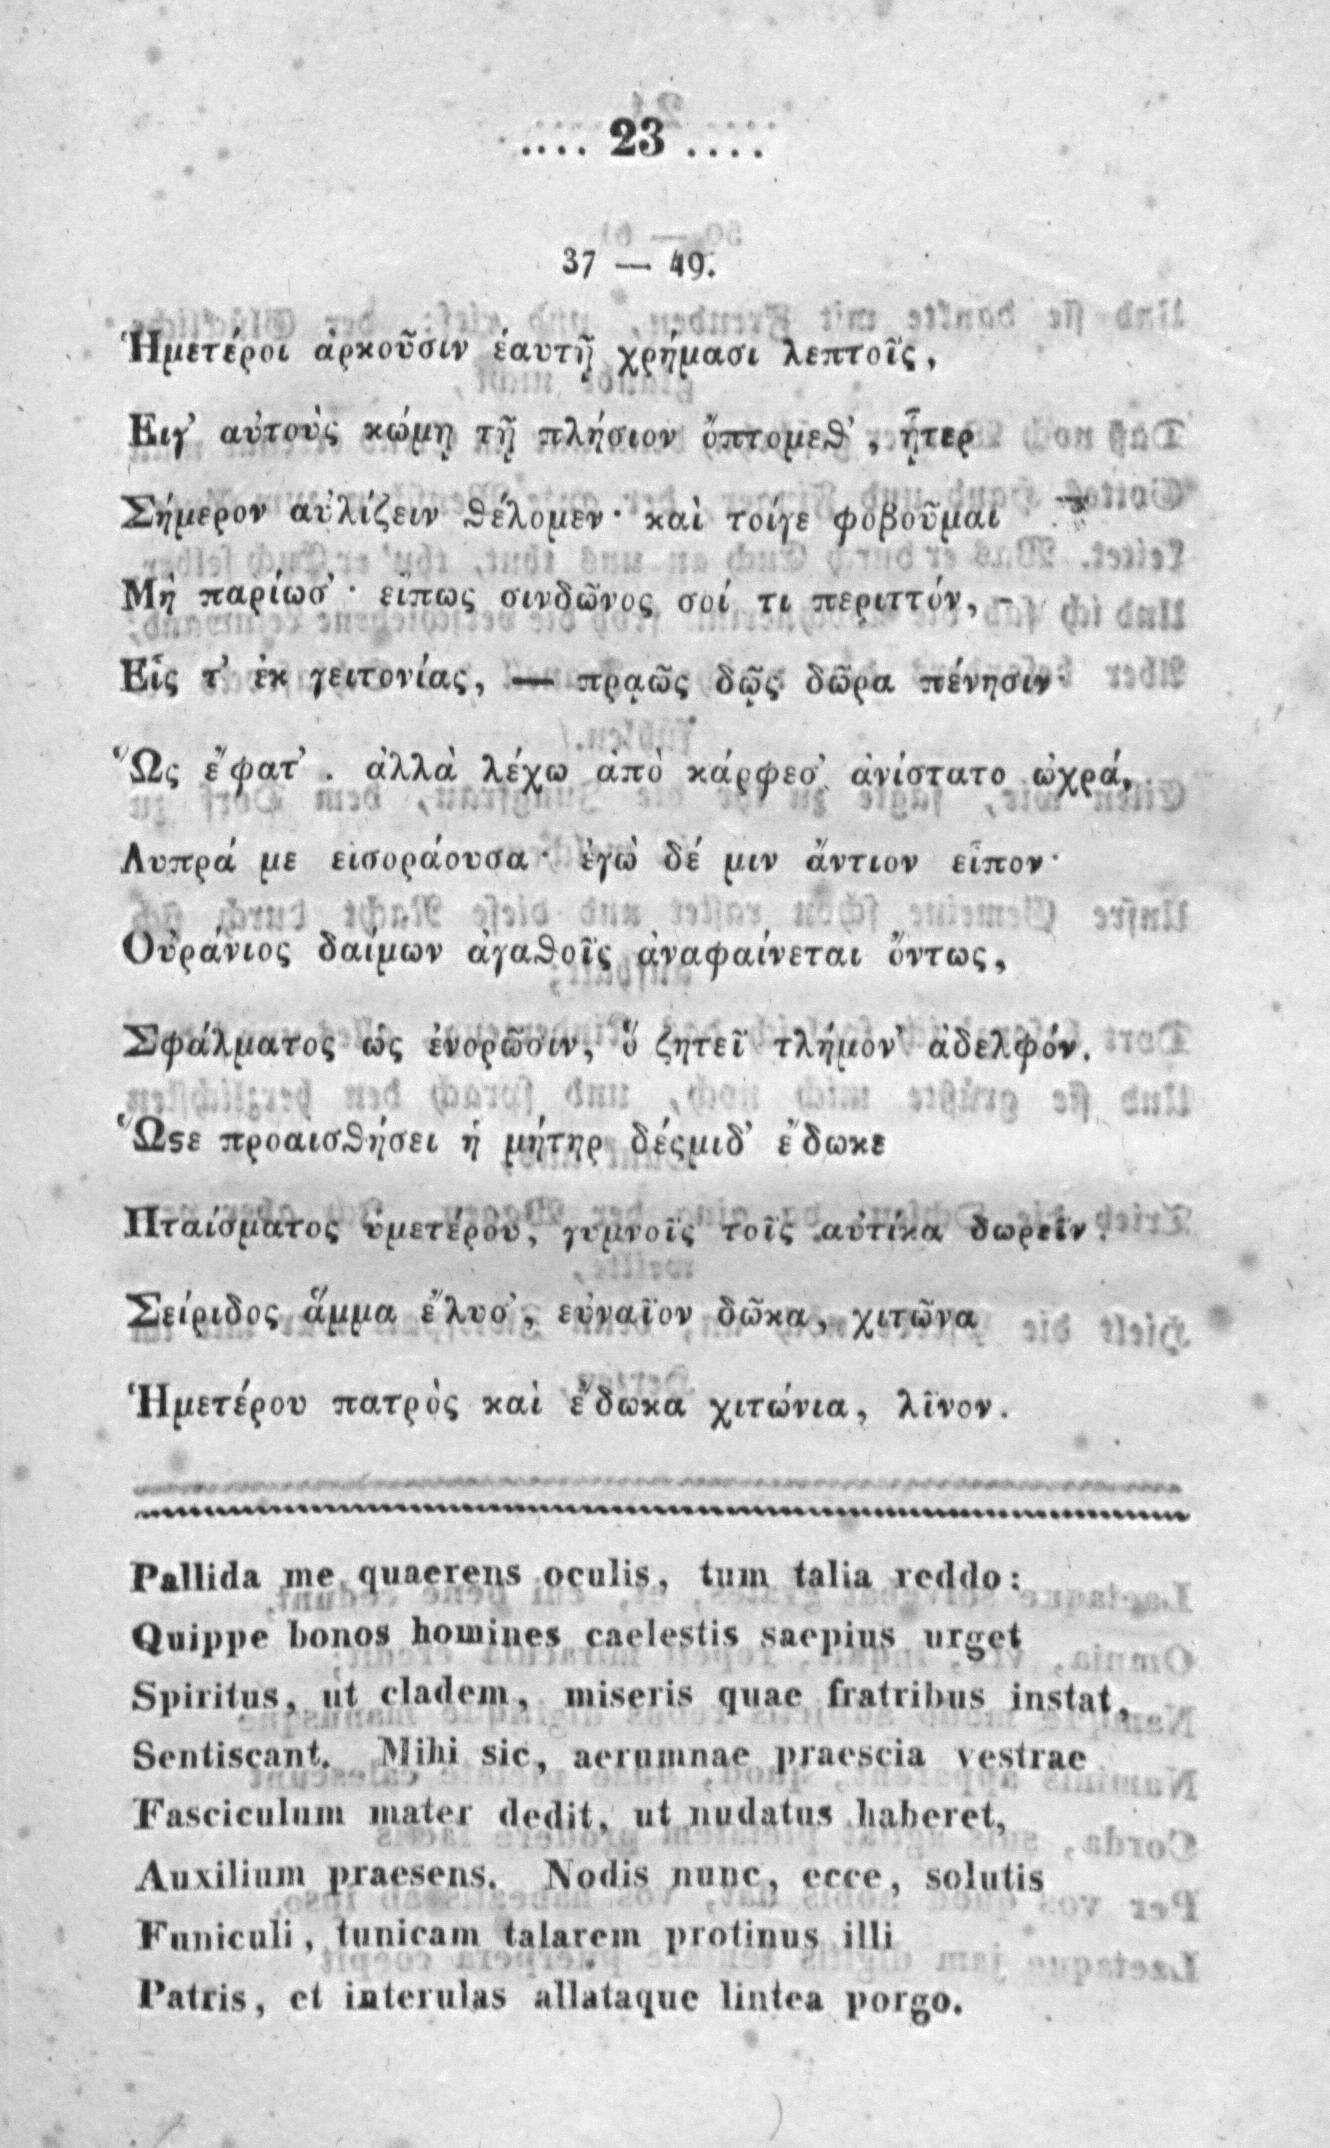 .... 23 ....
37 — 49.
Ἡμετέροι ἀρκοῦσιν ἑαυτῇ χρήμασι λεπτοῖς,
Ειγ’ αὐτοὺς κώμῃ τῇ πλήσιον ὄπτομεϑ’, ᾗτερ
Σήμερον αὐλίζειν ϑέλομεν· καὶ τοίγε φοβοῦμαι
Μὴ παρίωσ’· εἴπως σινδῶνος σοί τι περιττόν,
Εἷς τ’ ἐκ γειτονίας, — πρᾳῶς δῷς δῶρα πένησιν·
Ὣς ἔφατ’. ἀλλὰ λέχω ἀπὸ κάρφεσ’ ἀνίστατο ὠχρά,
Λυπρά με εισοράουσα· ἐγὼ δέ μιν ἄντιον εἶπον·
Οὐράνιος δαίμων ἀγαϑοῖς ἀναφαίνεται ὄντως,
Σφάλματος ὡς ἐνορῶσιν, ὅ ζητεῖ τλήμον’ ἀδελφόν.
Ὥςε προαισϑήσει ἡ μήτηρ δέςμιδ’ ἔδωκε
Πταίσματος ὑμετέρου, γυμνοῖς τοῖς αὐτίκα δωρεῖν.
Σείριδος ἅμμα ἔλυσ’, εὐναῖον δῶκα, χιτῶνα
Ἡμετέρου πατρὸς καὶ ἔδωκα χιτώνια, λῖνον.
Pallida me quaerens oculis, tum talia reddo:
Quippe bonos homines caelestis saepius urget
Spiritus, ut cladem, miseris quae fratribus instat,
Sentiscant. Mihi sic, aerumnae praescia vestrae
Fasciculum mater dedit, ut nudatus haberet,
Auxilium praesens. Nodis nunc, ecce, solutis
Funiculi, tunicam talarem protinus illi
Patris, et interulas allataque lintea porgo.